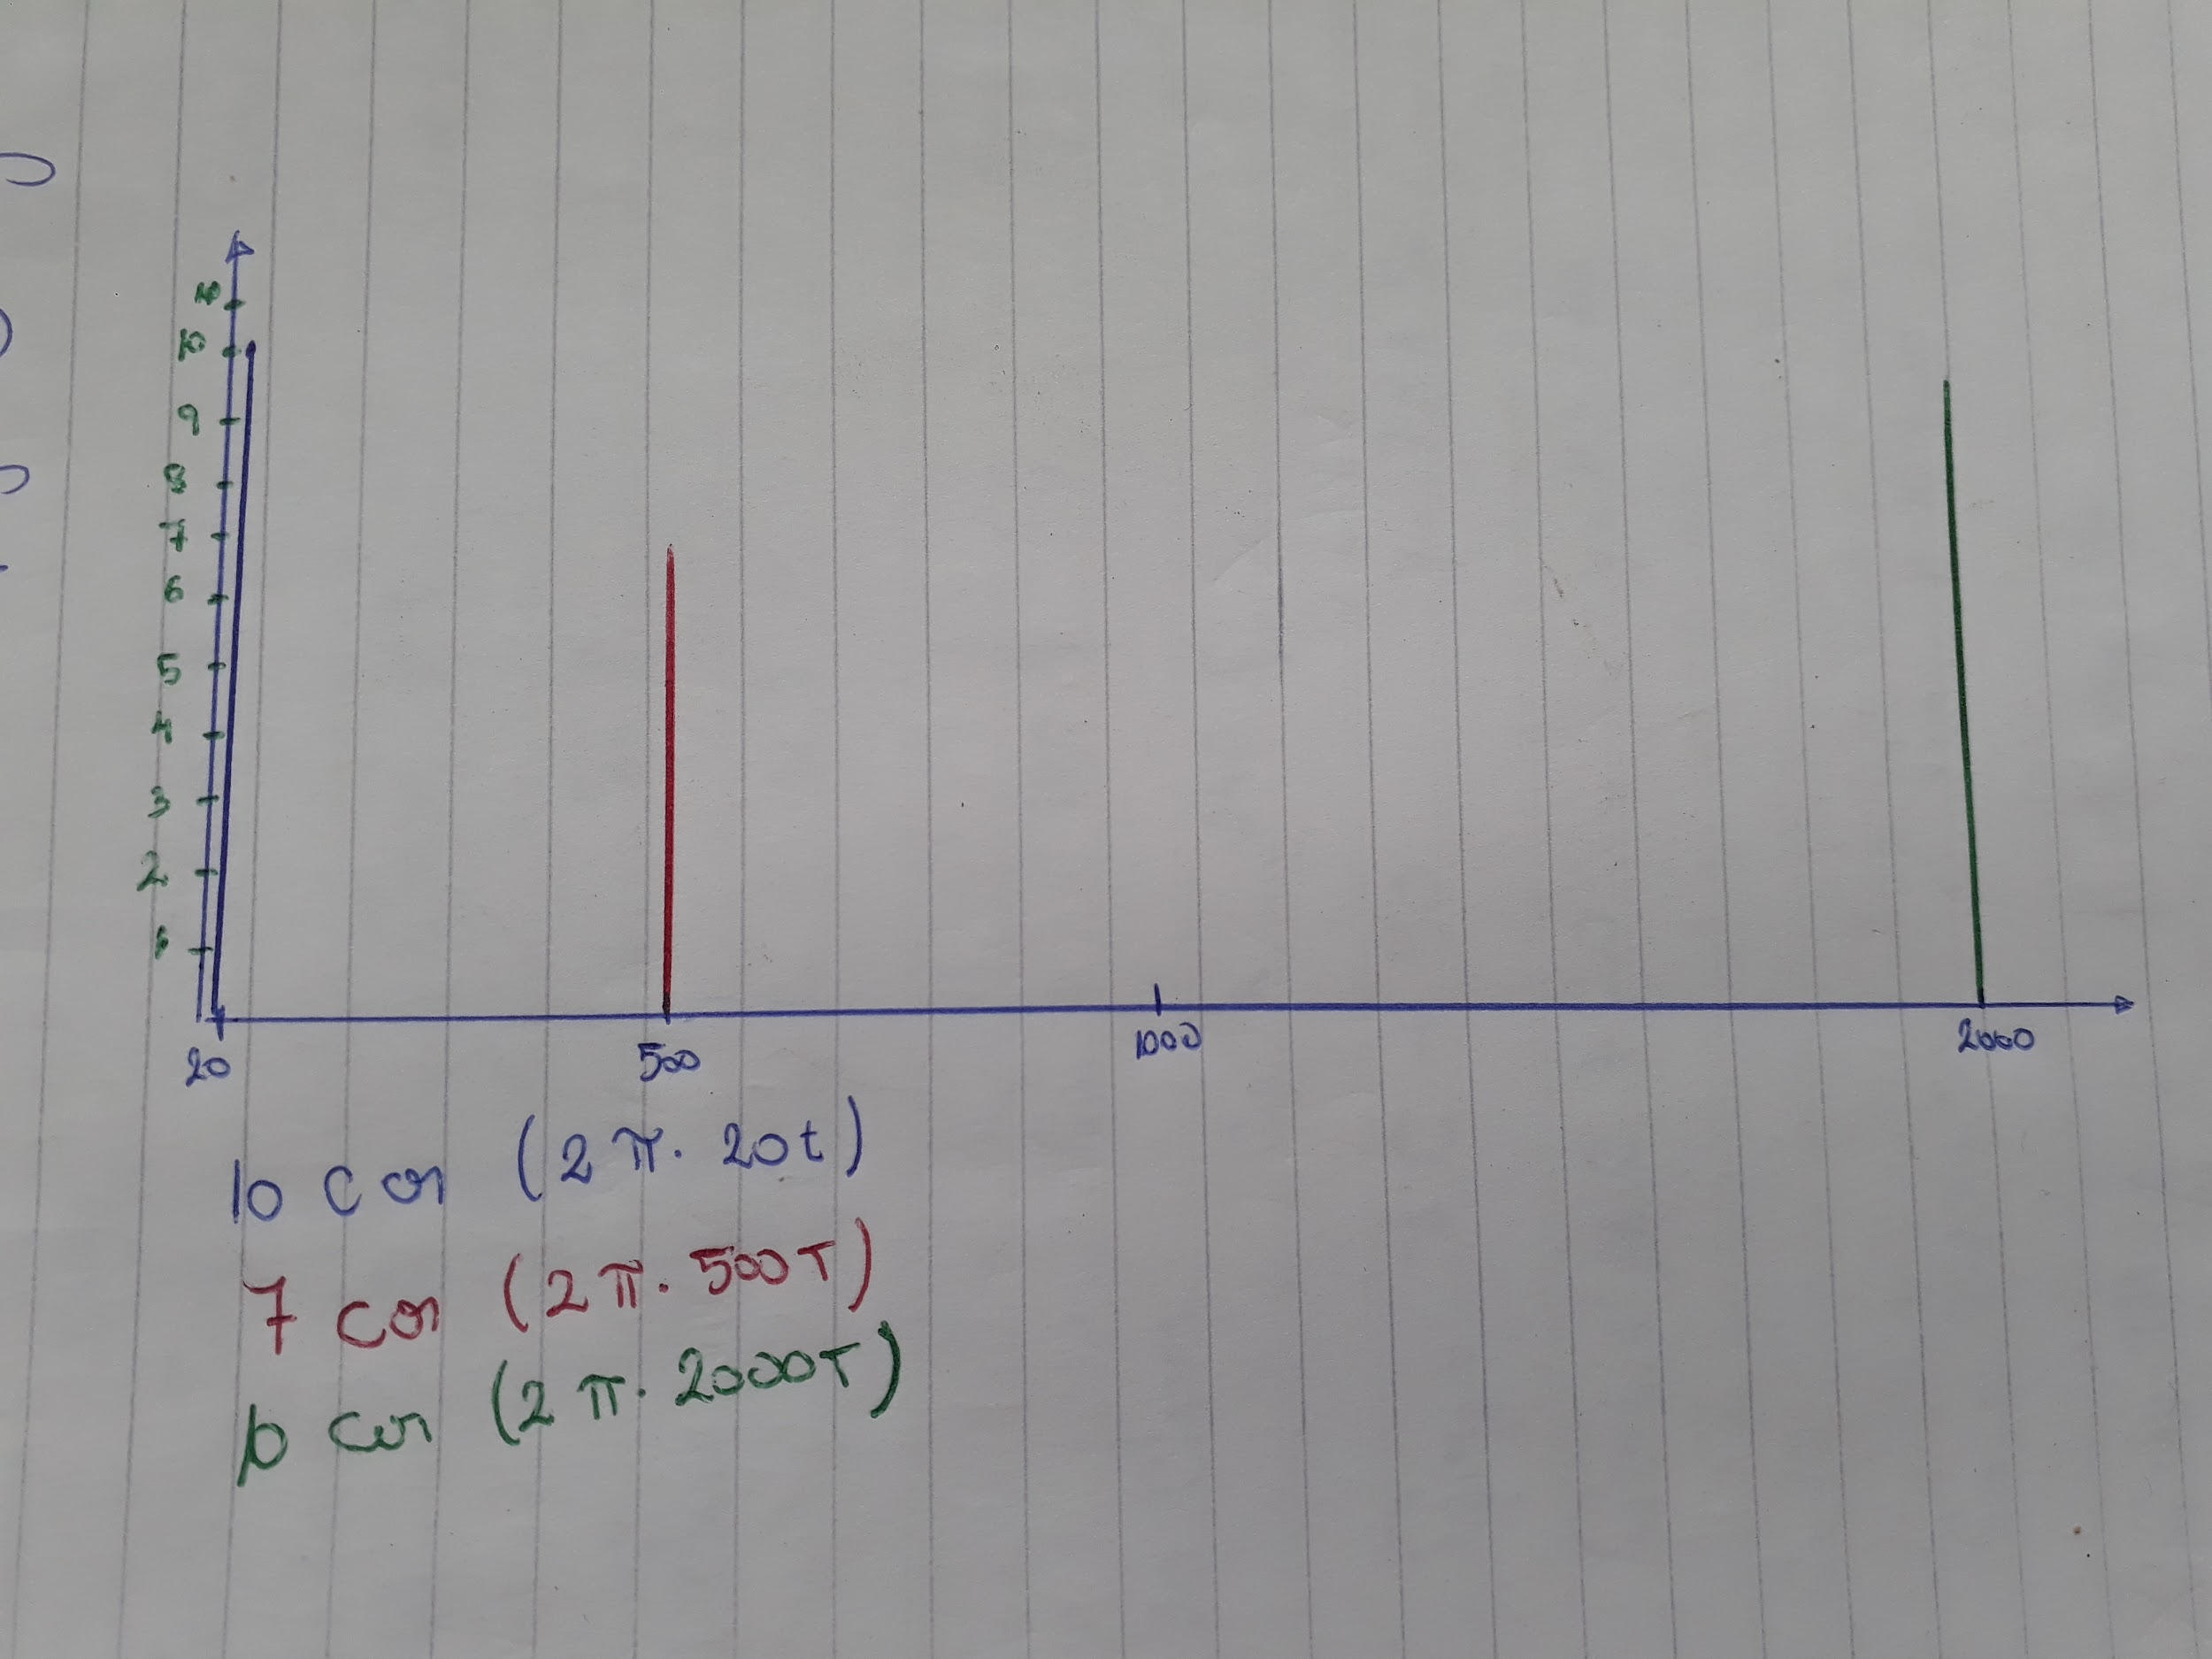 10
9
8
7
6
5
4
3
2
1
20 500 1000 2000
10 cos (2π. 20t)
7 cos (2π. 500T)
10 cos (2π. 2000T)